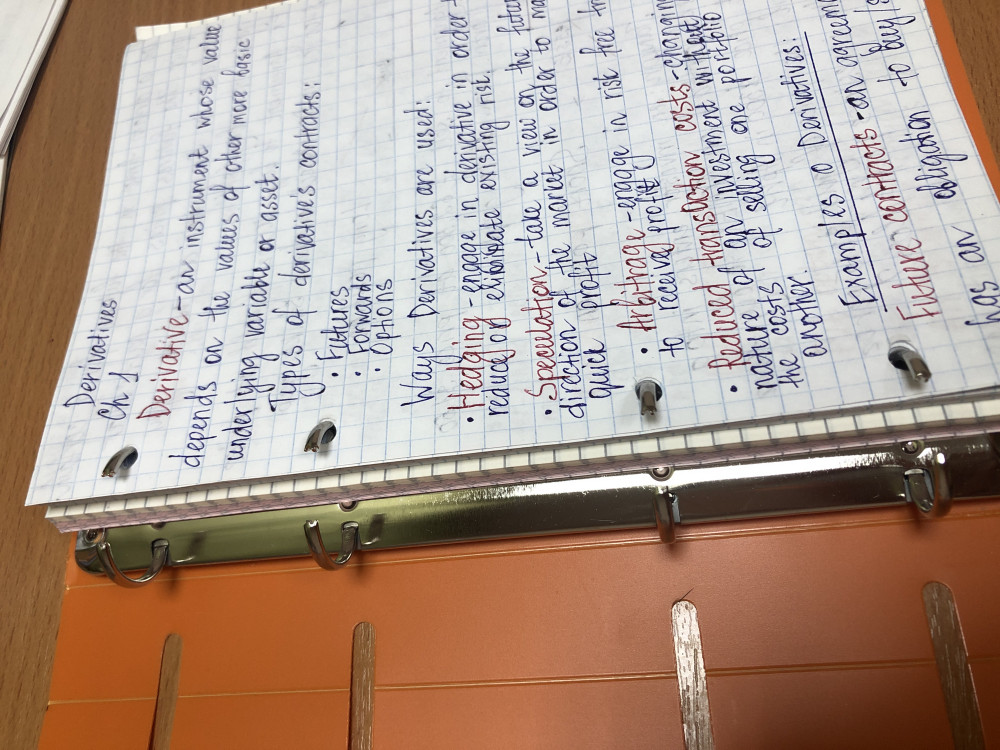 Derivatives
Ch 1
Derivative - an instrument whose value
depends on the values of other more basic
underlying variable or asset.
Types of derivatives contracts:
• Futures
• Forwards
• Options
Ways Derivatives are used:
• Hedging - engage in derivative in order
reduce or eliminate existing risk.
• Speculation - take a view on the future
direction of the market in order to
quick profit
• Arbitrage - engage in risk free
to receive profit
• Reduced transaction costs - changing
nature of an investment without
the costs of selling one portfolio
another.
Examples o Derivatives:
Future contracts - an
obligation to buy
has an